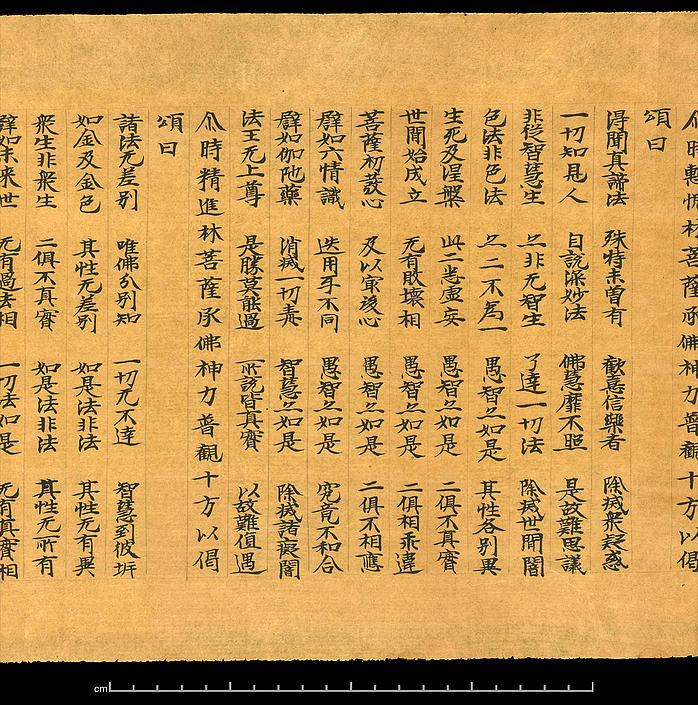 尒時慙愧林菩薩承佛神力普觀十方以偈
頌曰
淂聞真諦法 殊特未曾有 歡喜信樂者 除滅衆疑惑
一切知見人 自說深妙法 佛慧靡不照 是故難思議
非從智慧生 亦非无智生 了達一切法 除滅世間闇
色法非色法 亦二不為一 愚智亦如是 其性各別異
生死及涅槃 此二悉虛妄 愚智亦如是 二俱不真實
世間始成立 无有敗壞相 愚智亦如是 二俱相乖違
菩薩初發心 及以㝡後心 愚智亦如是 二俱不相應
譬如六情識 迭用互不同 愚智亦如是 究竟不和合
譬如伽陁藥 消滅一切毒 智慧亦如是 除滅諸癡闇
法王无上尊 是勝莫能過 所說皆真實 以故難值遇
尒時精進林菩薩承佛神力普觀十方以偈
頌曰
諸法无差別 唯佛分別知 一切无不達 智慧到彼岸
如金及金色 其性无差別 如是法非法 其性无有異
衆生非衆生 二俱不真實 如是法非法 其性无所有
譬如未來世 无有過去相 一切法如是 无有真實相
cm